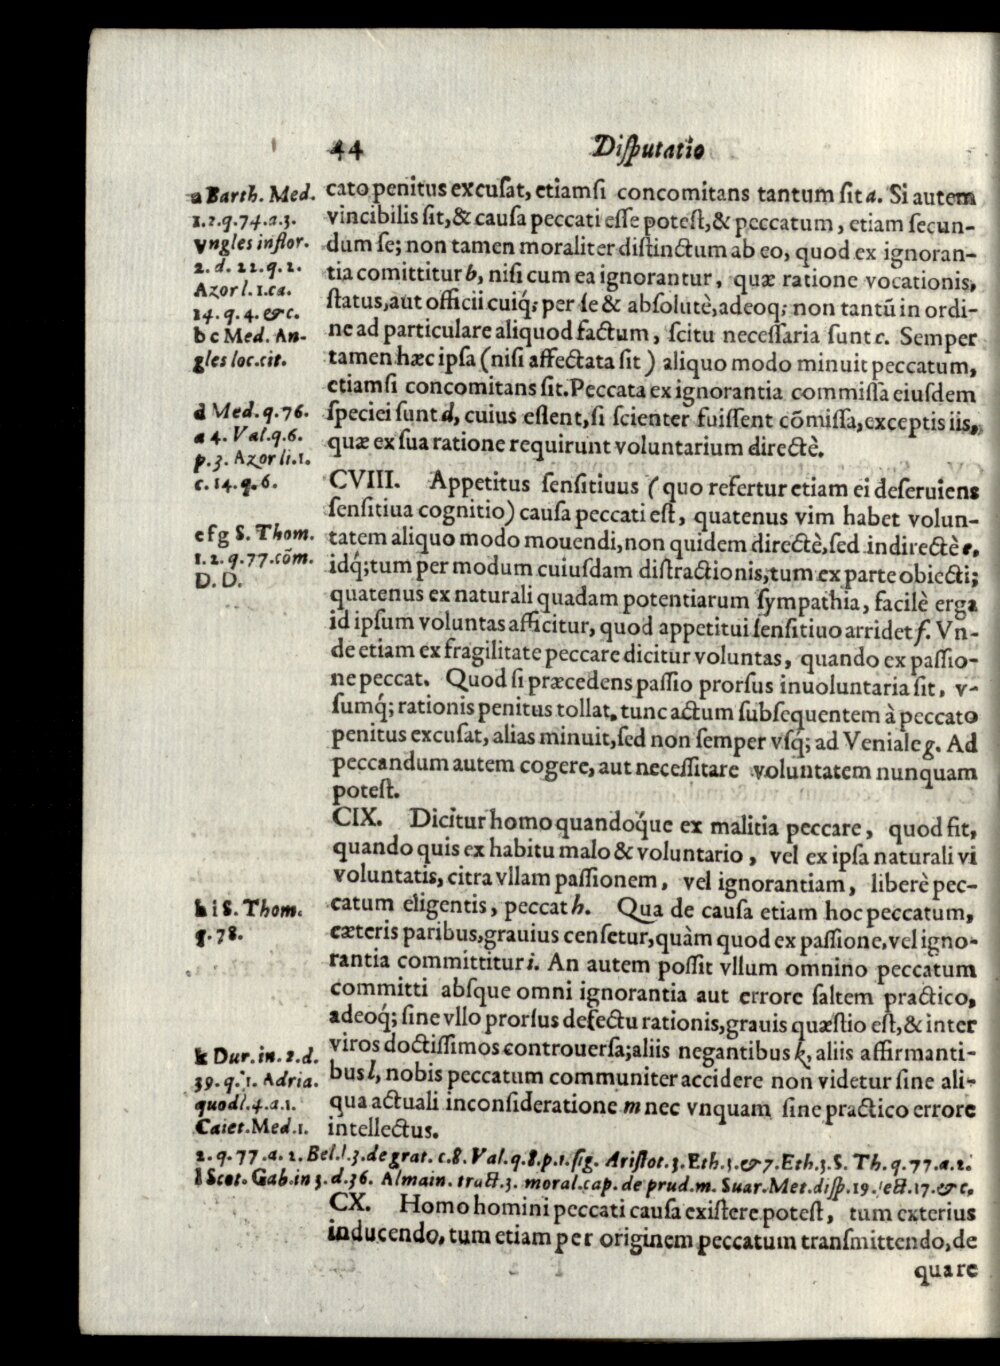 44 Disputatio
a Barth. Med.
1.2.q.74.a.3.
vngles inflor.
2. d. 22. q. 2.
Azor l. 1. ca.
14. q. 4. &c.
b c Med. An-
gles loc. cit.
d Med. q. 76.
a 4. Val. q. 6.
p. 3. Azor li. 1.
c. 14. q. 6.
e f g S. Thom.
1. 2. q. 77. cõm.
D. D.
h i S. Thom.
q. 78.
k Dur. in. 2. d.
39. q. 1. Adria.
quodl. 4. a. 1.
Caiet. Med. 1.
cato penitus excusat, etiamsi concomitans tantum sit a. Si autem
vincibilis sit, & causa peccati esse potest, & peccatum, etiam secun-
dum se; non tamen moraliter distinctum ab eo, quod ex ignoran-
tia comittitur b, nisi cum ea ignorantur, quæ ratione vocationis,
status, aut officii cuiq́; per se & absolutè, adeoq; non tantũ in ordi-
ne ad particulare aliquod factum, scitu necessaria sunt c. Semper
tamen hæc ipsa (nisi affectata sit) aliquo modo minuit peccatum,
etiamsi concomitans sit. Peccata ex ignorantia commissa eiusdem
speciei sunt d, cuius essent, si scienter fuissent cõmissa, exceptis iis,
quæ ex sua ratione requirunt voluntarium directè.
CVIII. Appetitus sensitiuus (quo refertur etiam ei deseruiens
sensitiua cognitio) causa peccati est, quatenus vim habet volun-
tatem aliquo modo mouendi, non quidem directè, sed indirectè e,
idq́; tum per modum cuiusdam distractionis, tum ex parte obiecti;
quatenus ex naturali quadam potentiarum sympathia, facilè erga
id ipsum voluntas afficitur, quod appetitui sensitiuo arridet f. Vn-
de etiam ex fragilitate peccare dicitur voluntas, quando ex passio-
ne peccat. Quod si præcedens passio prorsus inuoluntaria sit, v-
sumq́; rationis penitus tollat, tunc actum subsequentem à peccato
penitus excusat, alias minuit, sed non semper vsq́; ad Veniale g. Ad
peccandum autem cogere, aut necessitare voluntatem nunquam
potest.
CIX. Dicitur homo quandoq́ue ex malitia peccare, quod fit,
quando quis ex habitu malo & voluntario, vel ex ipsa naturali vi
voluntatis, citra vllam passionem, vel ignorantiam, liberè pec-
catum eligentis, peccat h. Qua de causa etiam hoc peccatum,
cæteris paribus, grauius censetur, quàm quod ex passione, vel igno-
rantia committitur i. An autem possit vllum omnino peccatum
committi absque omni ignorantia aut errore saltem practico,
adeoq́; sine vllo prorsus defectu rationis, grauis quæstio est, & inter
viros doctissimos controuersa; aliis negantibus k, aliis affirmanti-
bus l, nobis peccatum communiter accidere non videtur sine ali-
qua actuali inconsideratione m nec vnquam sine practico errore
intellectus.
2. q. 77. a. 2. Bel. l. 3. de grat. c. 8. Val. q. 8. p. 1. sig. Aristot. 3. Eth. 3. & 7. Eth. 3. S. Th. q. 77. a. 2.
l Scot. Gab. in 3. d. 36. Almain. tract. 3. moral. cap. de prud. m. Suar. Met. disp. 19. sect. 17. & c.
CX. Homo homini peccati causa existere potest, tum exterius
inducendo, tum etiam per originem peccatum transmittendo, de
quare